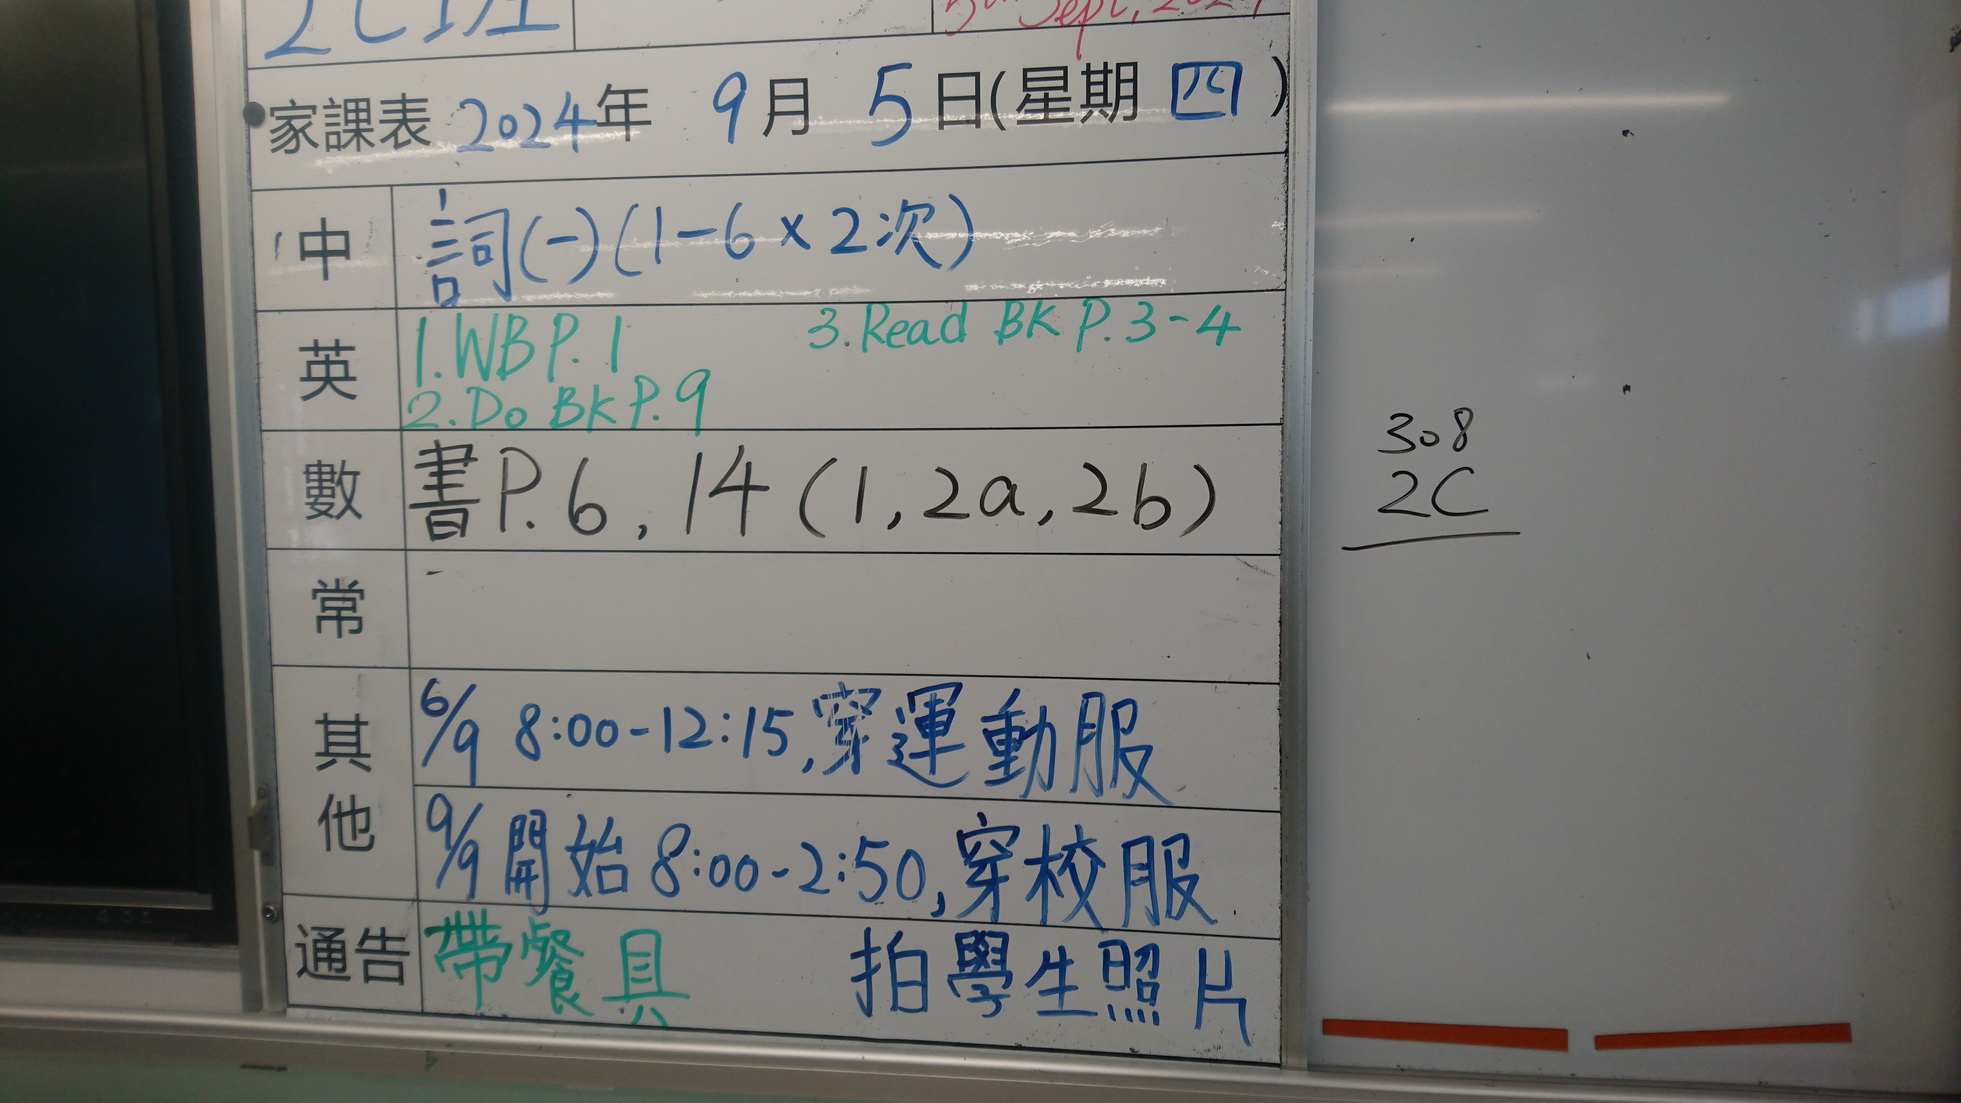 2C班
5th Sept, 2024
家課表 2024年 9月 5日(星期 四 )
中 詞(一)(1-6×2次)
英 1.WB P.1 3.Read BK P.3-4
2.Do BK P.9
數 書P.6, 14 (1, 2a, 2b)
常
其他 6/9 8:00-12:15,穿運動服
9/9開始8:00-2:50,穿校服.
通告 帶餐具 拍學生照片
308
2C